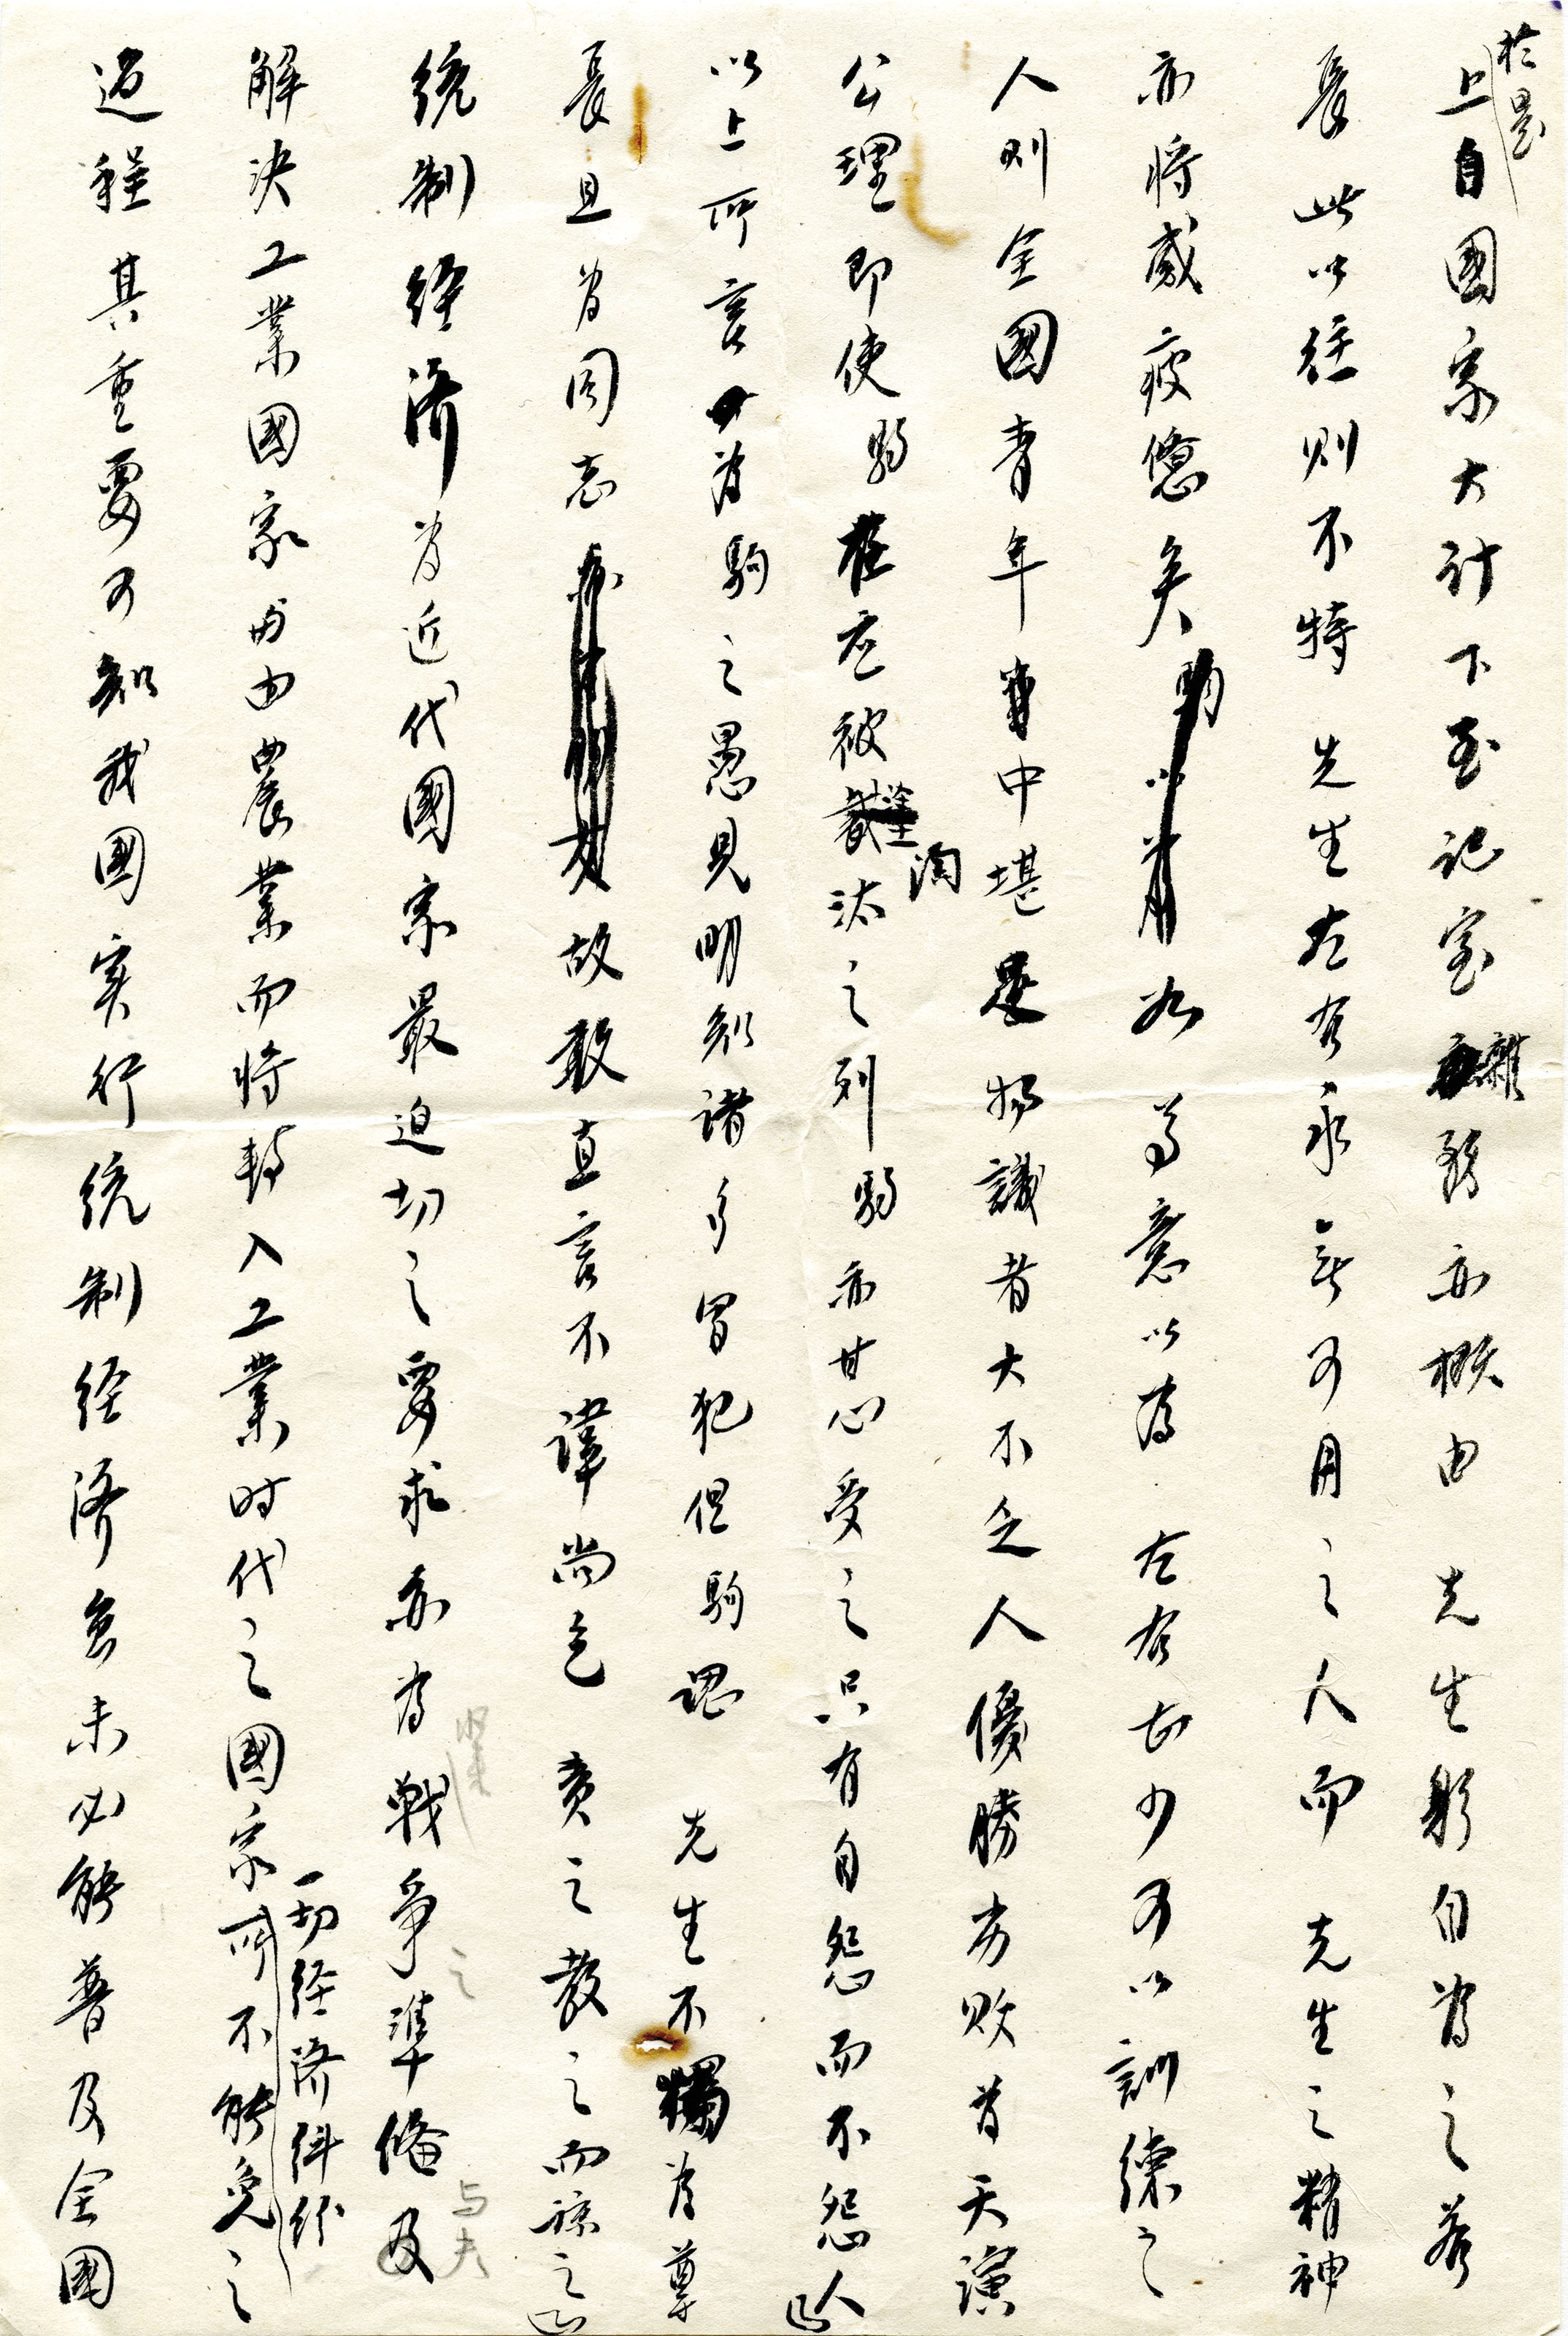 於是
上自國家大計下至記室雜務亦概由 先生躬自為之若
長此以往則不特 先生左右永無可用之人而 先生之精神
亦將感疲憊矣如 尊意以為 左右缺少可以訓練之
人則全國青年中堪物識者大不乏人優勝劣敗為天演
公理即使駒在應被淘汰之列駒亦甘心受之只有自怨而不怨人
以上所言為駒之愚見明知諸多冒犯但駒認 先生不獨為尊
長且為同志故敢直言不諱尚乞 責之教之而諒之
統制經济為近代國家最迫切之要求亦為戰爭準備及
解决工業國家與由農業而將轉入工業时代之國家所不能免之
一切经济纠纷
过程其重要可知我國实行統制经济虽未必能普及全國